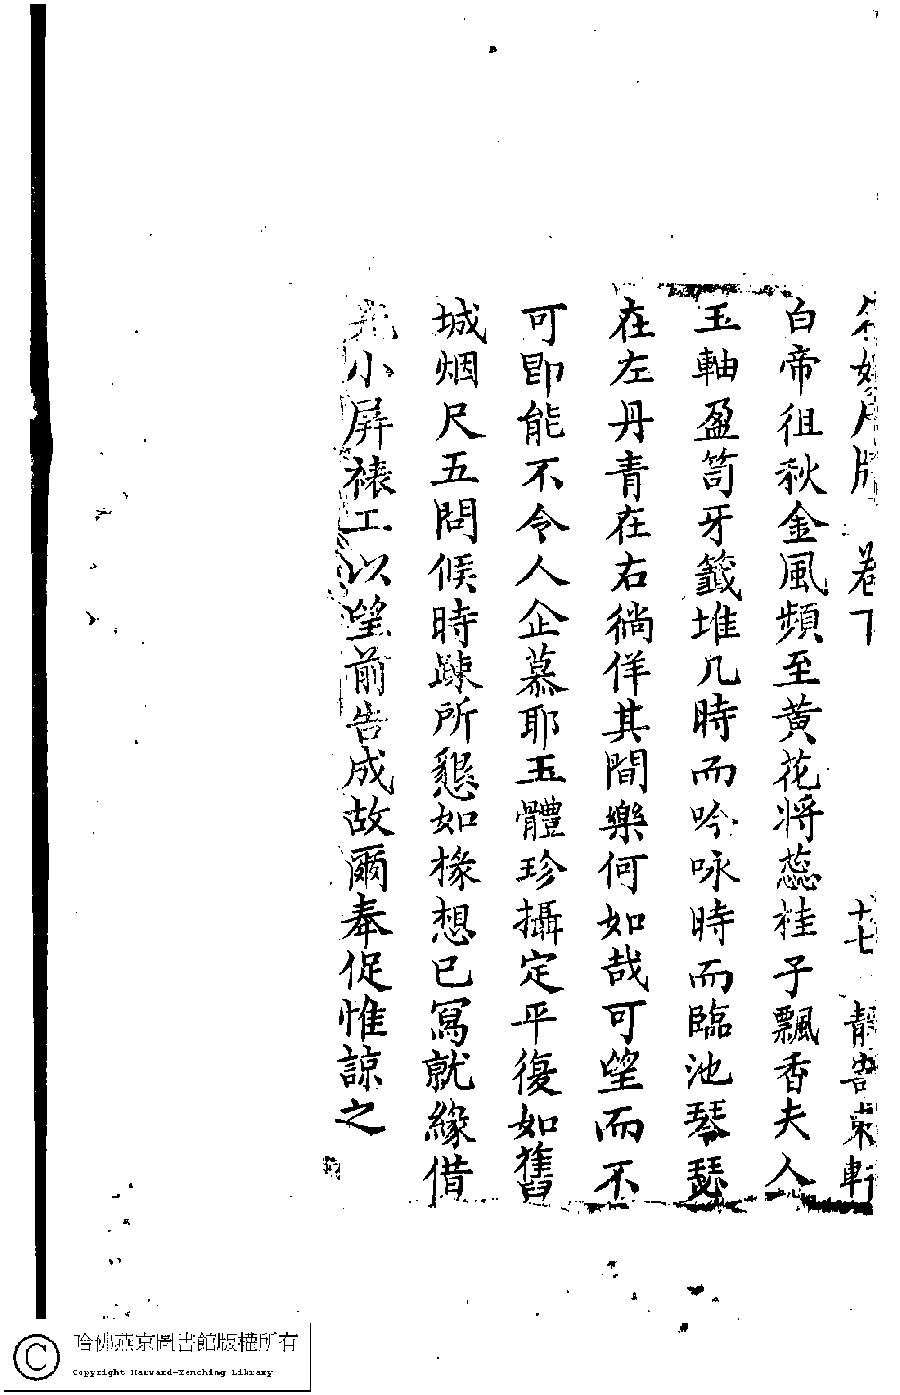 卷下 十七
白帝徂秋金風頻至黄花将蕊桂子飄香夫人
玉軸盈笥牙籤堆几時而吟咏時而臨池琴瑟
在左丹青在右徜佯其間樂何如哉可望而不
可即能不令人企慕耶玉體珍攝定平復如舊
城烟尺五問候時踈所懇如椽想已寫就緣借
小屏裱工以望前告成故爾奉促惟諒之
哈佛燕京圖書館版權所有
Copyright Harvard-Yenching Library